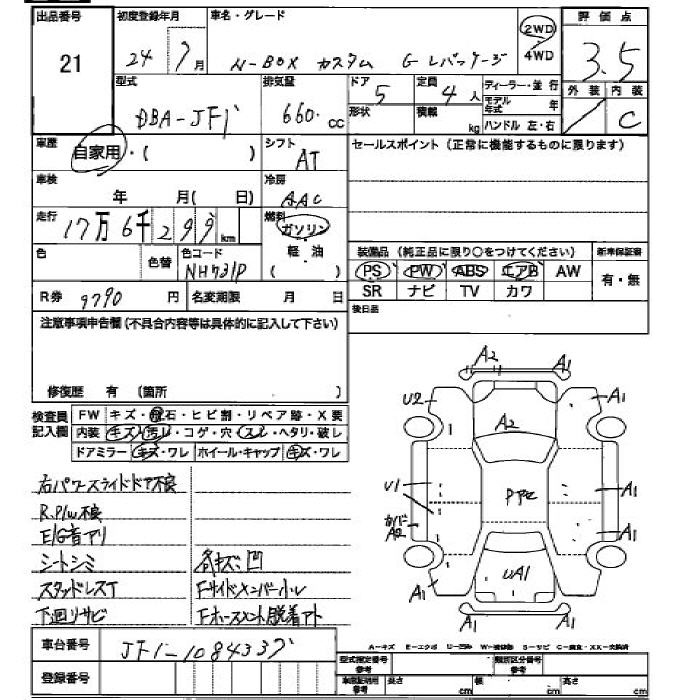 出品番号 初度登録年月 車名・グレード 2WD 4WD 評価点
21 24年7月 N-BOX カスタム G Lパッケージ 3.5
型式 排気量 ドア 定員 ディーラー・並行 外装 内装
DBA-JF1 660 cc 5 4人 モデル年式 年
形状 積載 kg ハンドル 左・右 C
車歴 自家用・( ) シフト AT セールスポイント(正常に機能するものに限ります)
車検 年 月( 日) 冷房 AAC
走行 17万6千299km 燃料 ガソリン 軽・油 ( )
色 色替 色コード NH731P 装備品(純正品に限り○をつけてください) 新車保証書
PS PW ABS エアB AW 有・無
R券 9790円 名変期限 月 日 SR ナビ TV カワ
後日品
注意事項申告欄(不具合内容等は具体的に記入して下さい)
修復歴 有 (箇所 )
検査員記入欄 FW キズ・飛石・ヒビ割・リペア跡・X要
内装 キズ・汚レ・コゲ・穴・スレ・ヘタリ・破レ
ドアミラー キズ・ワレ ホイール・キャップ キズ・ワレ
右パワースライドドア不良
R.P/w不良
E/G音アリ
シートシミ 各キズ凹
スタッドレスT Fサイドメンバー小ル
下廻リサビ Fホースメント脱着アト
A2 A1
U2 A1
A2
U1 PPタ A1
A2 A1
UA1
A1 A1
A-キズ E-エクボ U-凹み W-補修跡 S-サビ C-腐食・XX-交換済
車台番号 JF1-1084337
登録番号
型式指定番号 参考 類別区分番号 参考
車庫証明用 参考 長さ cm 幅 cm 高さ cm